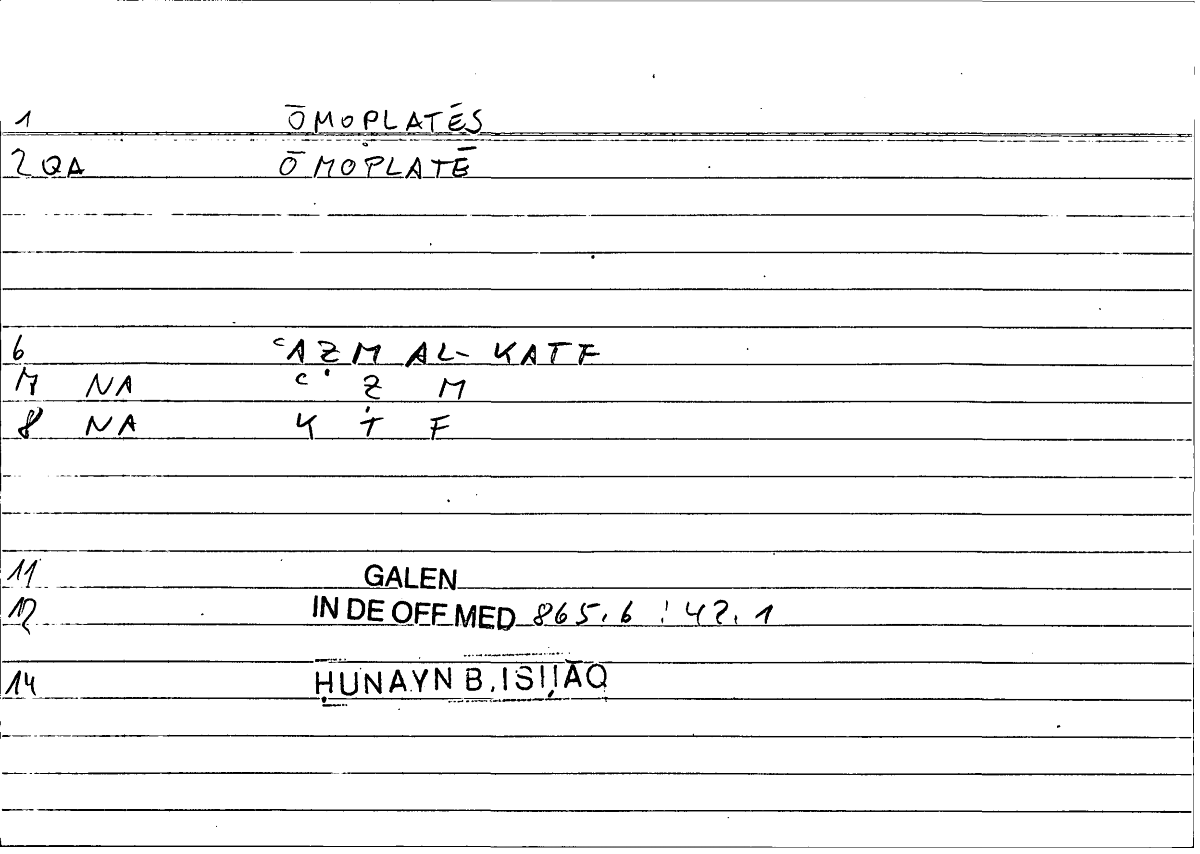 1 ŌMOPLATĒS
2 QA ŌMOPLATĒ
6 ʿAẒM AL-KATF
7 NA ʿ Ẓ M
8 NA K T F
11 GALEN
12 IN DE OFF MED 865.6 : 42.1
14 ḤUNAYN B. ISḤĀQ